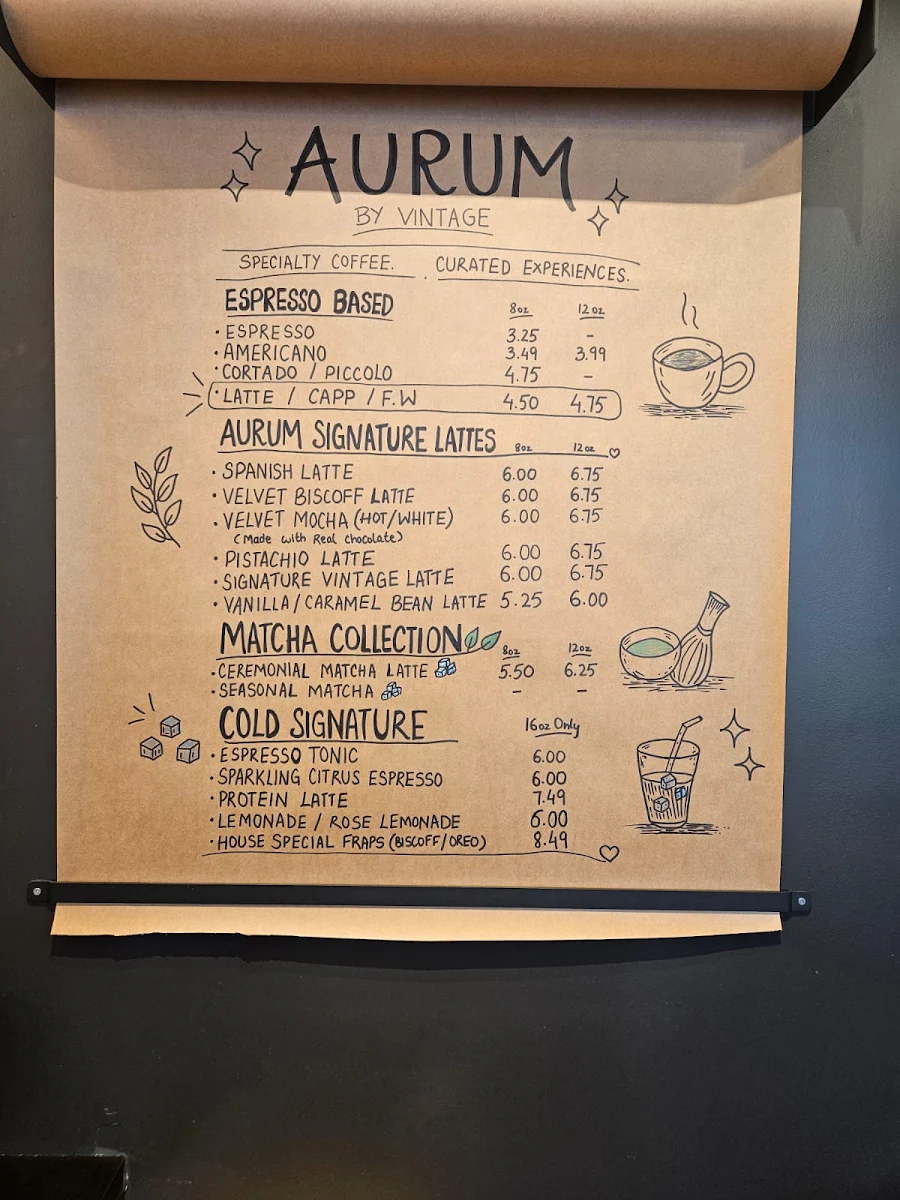 AURUM
BY VINTAGE
SPECIALTY COFFEE. CURATED EXPERIENCES.
ESPRESSO BASED 8oz 12oz
· ESPRESSO 3.25 -
· AMERICANO 3.49 3.99
· CORTADO / PICCOLO 4.75 -
· LATTE / CAPP / F.W 4.50 4.75
AURUM SIGNATURE LATTES 8oz 12oz
· SPANISH LATTE 6.00 6.75
· VELVET BISCOFF LATTE 6.00 6.75
· VELVET MOCHA (HOT/WHITE) 6.00 6.75
(Made with Real chocolate)
· PISTACHIO LATTE 6.00 6.75
· SIGNATURE VINTAGE LATTE 6.00 6.75
· VANILLA/CARAMEL BEAN LATTE 5.25 6.00
MATCHA COLLECTION 8oz 12oz
· CEREMONIAL MATCHA LATTE 5.50 6.25
· SEASONAL MATCHA - -
COLD SIGNATURE 16oz Only
· ESPRESSO TONIC 6.00
· SPARKLING CITRUS ESPRESSO 6.00
· PROTEIN LATTE 7.49
· LEMONADE / ROSE LEMONADE 6.00
· HOUSE SPECIAL FRAPS (BISCOFF/OREO) 8.49